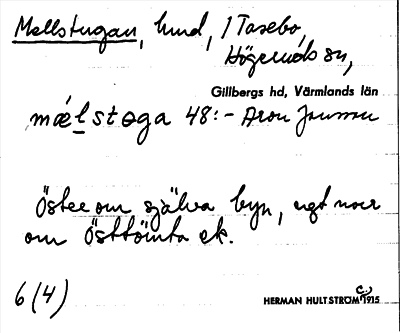 Mellstugan, hmd, 1 Tasebo,
Högeruds sn,
Gillbergs hd, Värmlands län
mǽlstoga 48:- Aron Jonsson
Öster om själva byn, norr
om Östtomta ek.
6 (4)
HERMAN HULTSTRÖM C:a 1915